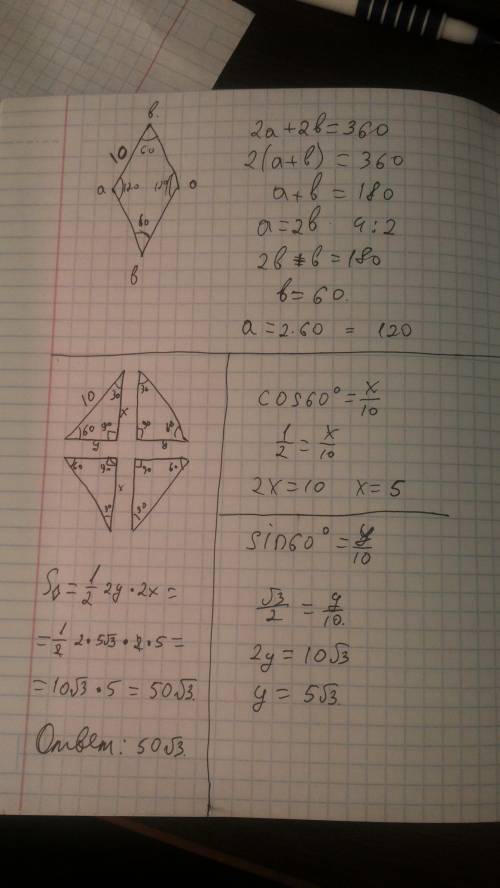 в.
10
60
a 120 120 a
60
в
2a + 2в = 360
2(a+в) = 360
a + в = 180
a = 2в 4:2
2в + в = 180
в = 60.
a = 2·60 = 120
10 30 x
60 90
y
30
90 60
y
60 90 x
30
90 60
30
cos60° = x/10
1/2 = x/10
2x = 10 x = 5
sin60° = y/10
√3/2 = y/10.
2y = 10√3
y = 5√3.
S◊ = 1/2 2y · 2x =
= 1/2 2 · 5√3 · 2 · 5 =
= 10√3 · 5 = 50√3.
Ответ: 50√3.